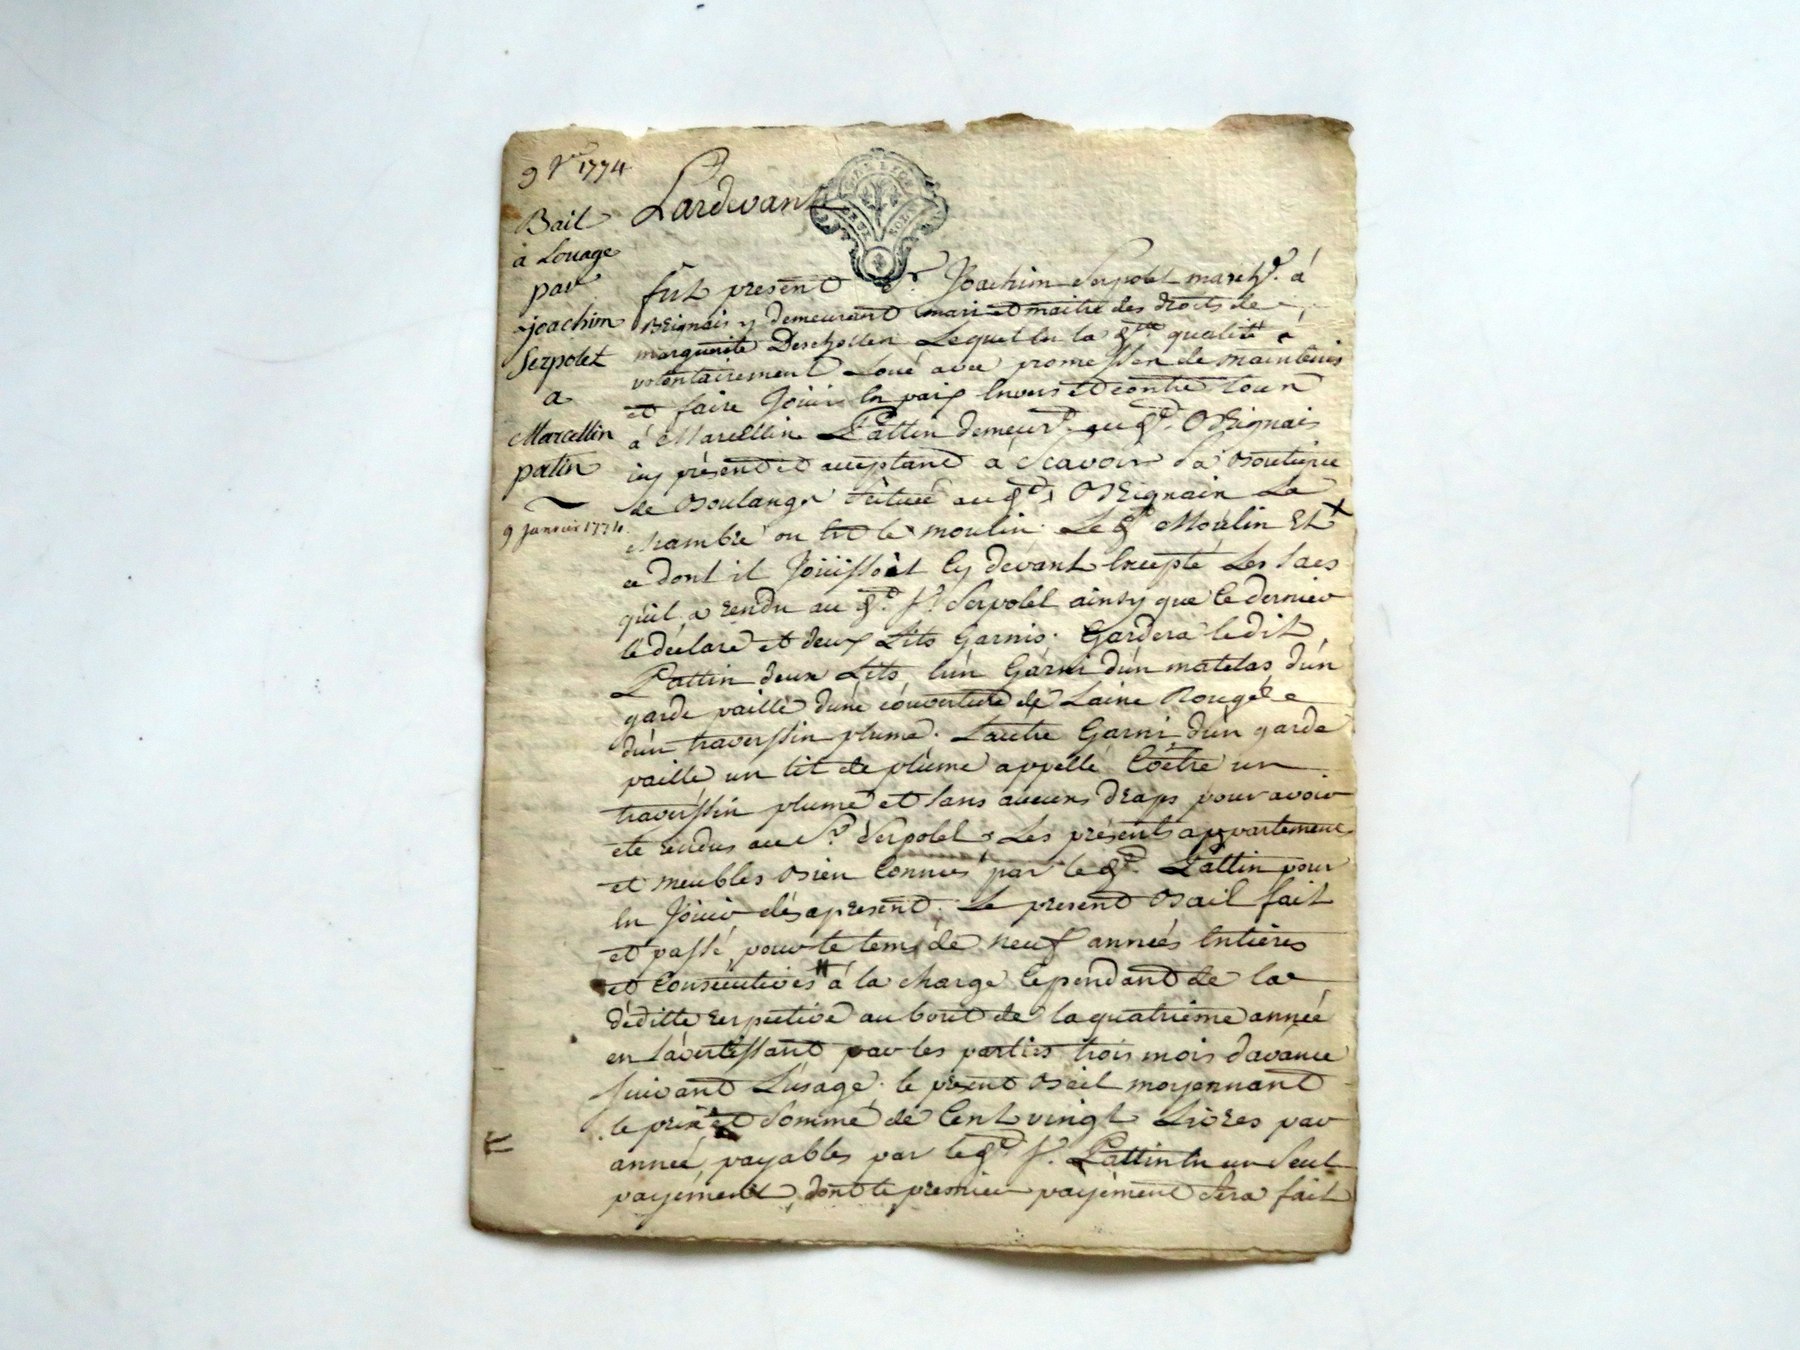 9 Jr 1774
Bail
à Louage
par
joachim
Serpolet
a
Marcellin
patin
9 janvier 1774
Pardevant
fut present Sr. Joachim Serpolet marchd. à
Brignais y demeurant mari et maitre des droits de
marguerite Lequel en la qualité a
volontairement Loué avec promesse de maintenir
et faire Jouir en paix Envers et contre tous
à Marcellin Pattin demeurt. aud. Brignais
icy présent et acceptant à Scavoir Sa Boutique
de Boulanger Scituée aud. Brignais La
chambre ou est le moulin. Led. Moulin Et
ce dont il Jouissoit Cy devant Excepté Les Sacs
qu'il a rendu aud. Sr. Serpolet ainsy que ce dernier
le déclare et deux Lits Garnis. Gardera ledit
Pattin deux Lits, l'un Garni d'un matelas d'un
garde paille d'une couverture de Laine Rouge
d'un traverssin plume. Lautre Garni d'un garde
paille un lit de plume appellé Coëtre un
traverssin plume et Sans aucuns draps pour avoir
eté rendus au Sr. Serpolet. Les présents appartements
et meubles Bien Connus par led. Pattin pour
En Jouir dès apresent. Le present Bail fait
et passé pour le tems de neuf années Entières
et Consécutives à la charge Cependant de la
déditte respective au bout de la quatrième année
en S'avertissant par les parties trois mois d'avance
Suivant L'usage. le present Bail moyennant
le prix et Somme de Cent vingt Livres par
année, payables par led. Sr. Pattin En un Seul
payement, dont le premier payement Sera fait